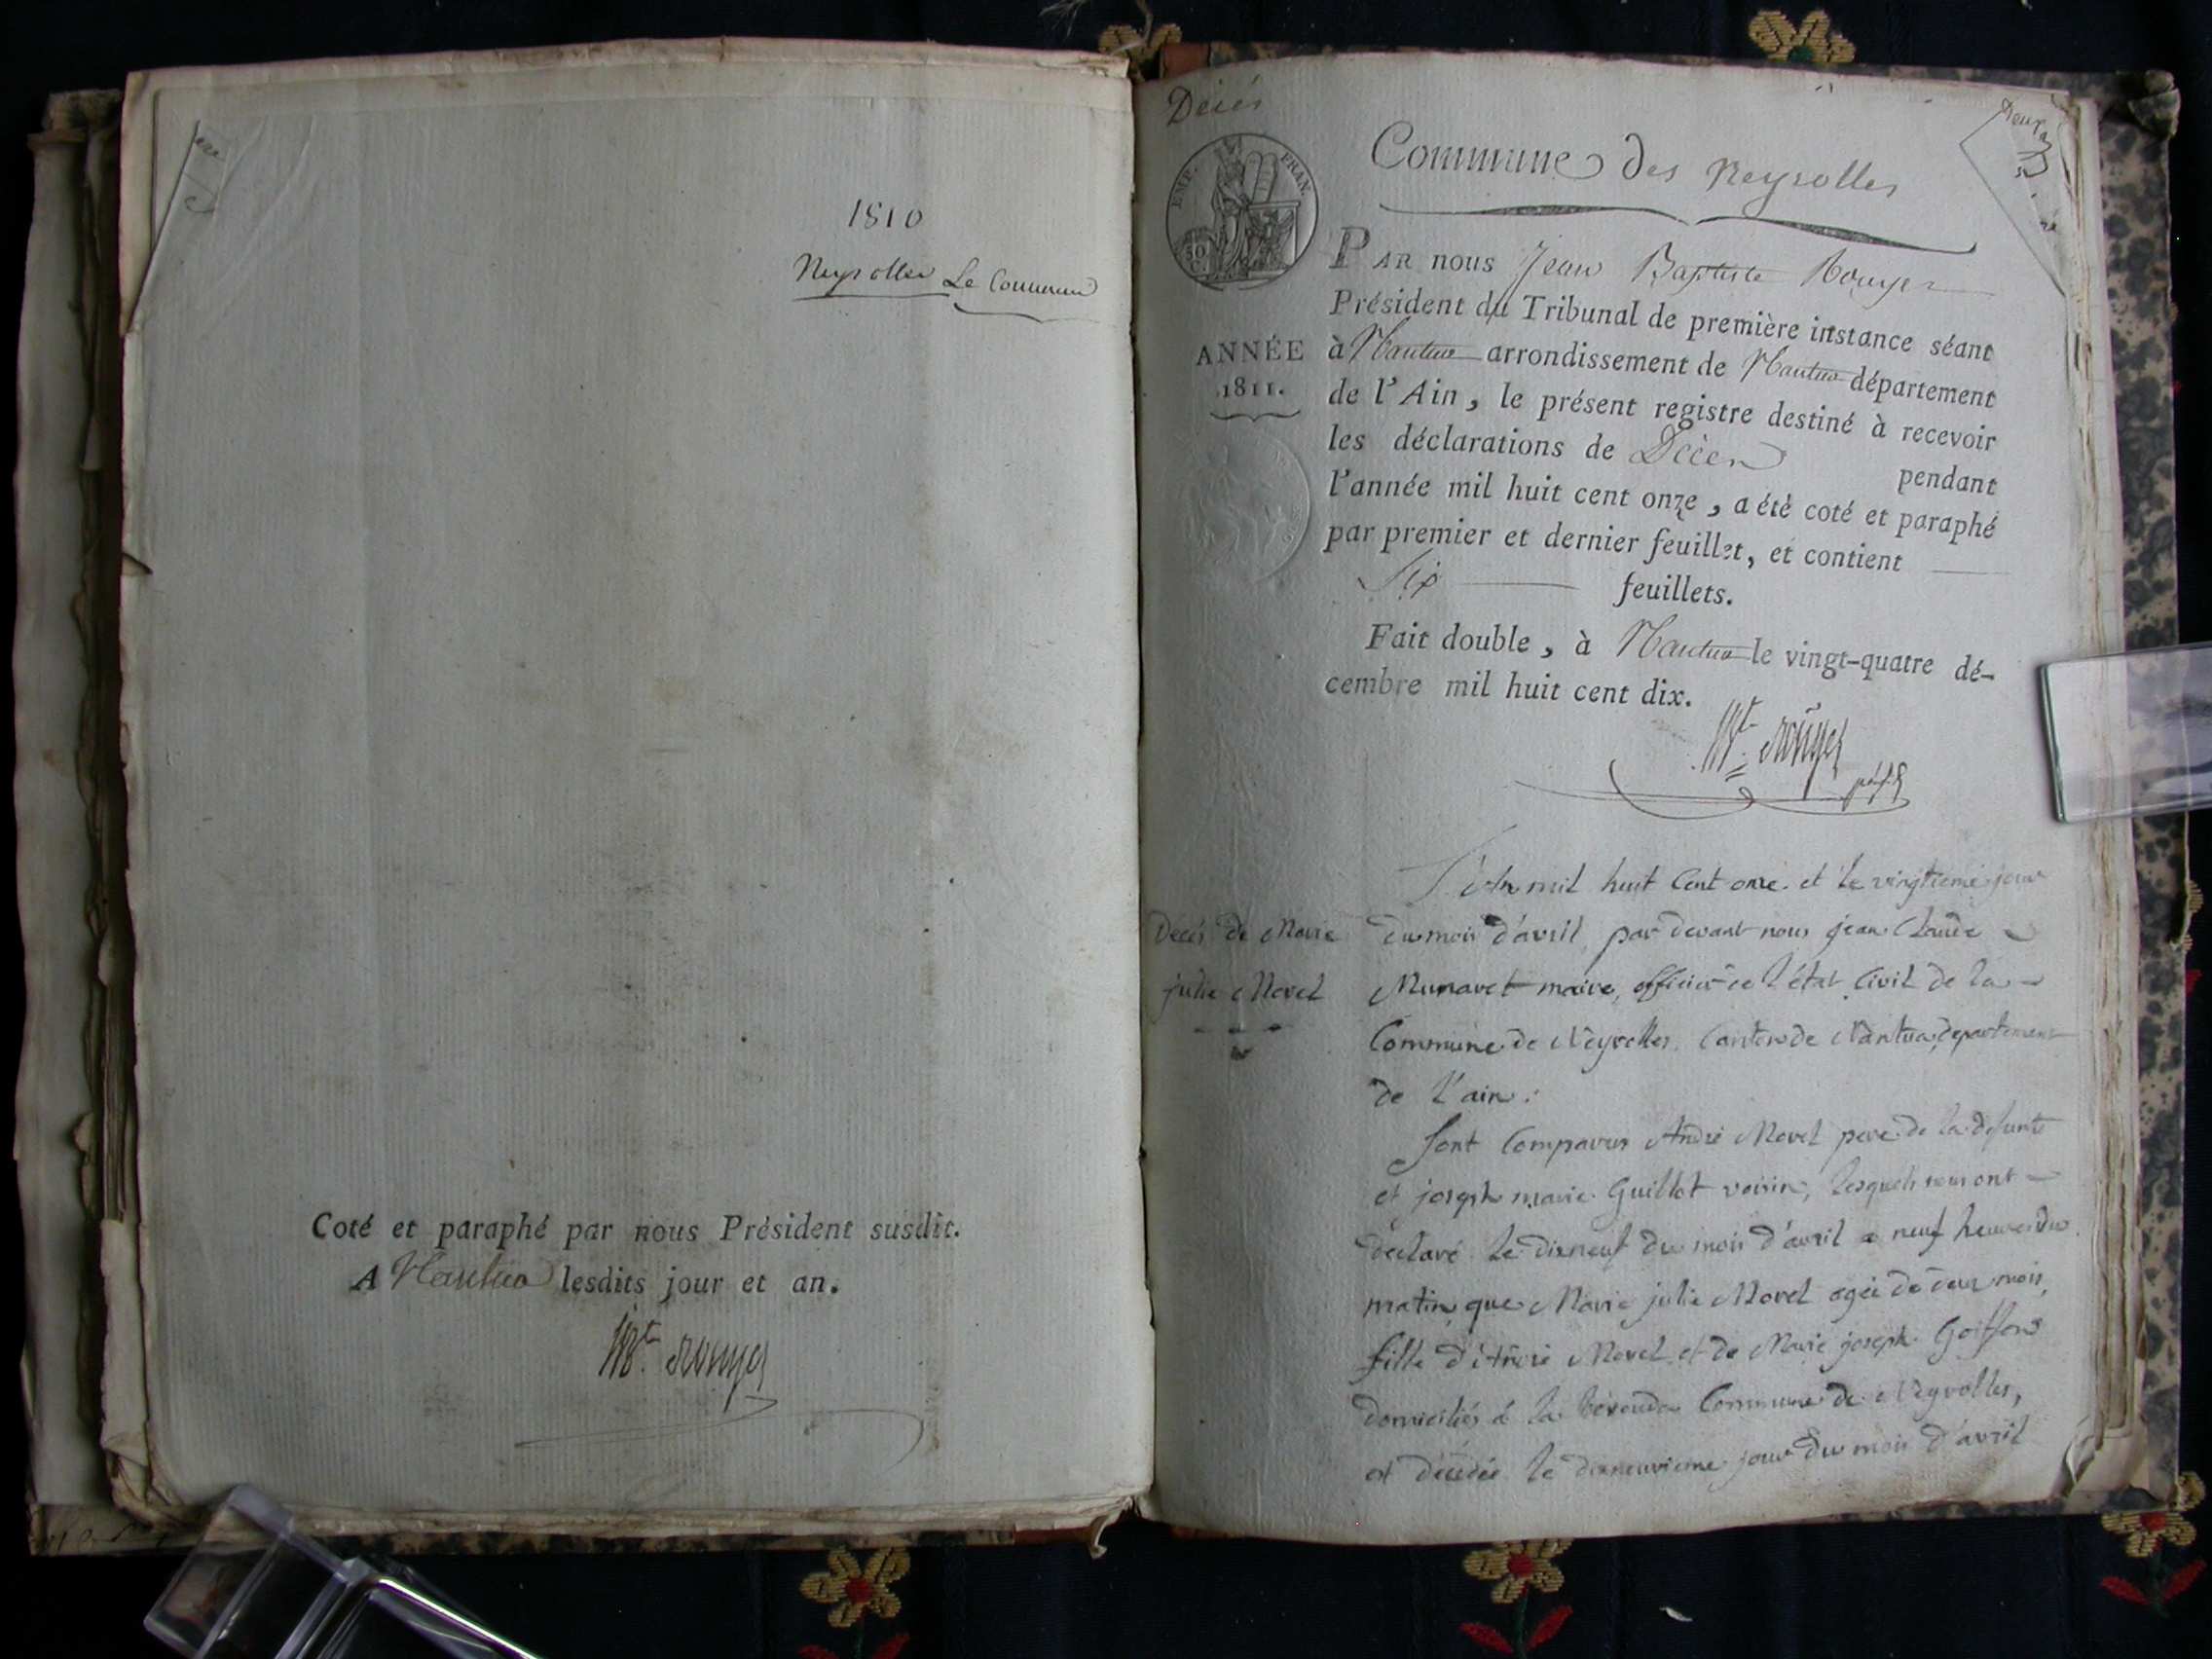 1810
Neyrolles Le Commun
Coté et paraphé par nous Président susdit.
A Nantua lesdits jour et an.
JBt. Rouyer
Décés
Commune des Neyrolles
EMP. FRAN.
50 C.
PAR nous Jean Baptiste Rouyer
Président du Tribunal de première instance séant
ANNÉE
1811.
à Nantua arrondissement de Nantua département
de l'Ain, le présent registre destiné à recevoir
les déclarations de Décès pendant
l'année mil huit cent onze, a été coté et paraphé
par premier et dernier feuillet, et contient
Six feuillets.
Fait double, à Nantua le vingt-quatre dé-
cembre mil huit cent dix.
JBt. Rouyer
Décés de Marie
julie Morel
L'An mil huit Cent onze et le vingtieme jour
du mois d'avril par devant nous jean Claude
Munavet maire, officier de l'état Civil de la
Commune de Neyrolles, Canton de Nantua, departement
de l'ain :
Sont Comparus André Morel pere de la defunte
et joseph marie Guillot voisin, lesquels nous ont
declaré le dixneuf du mois d'avril a neuf heures du
matin, que Marie julie Morel agée de deux mois,
fille d'André Morel et de Marie joseph Goiffon
domiciliés à la Commune de Neyrolles,
est décédée le dixneuvieme jour du mois d'avril